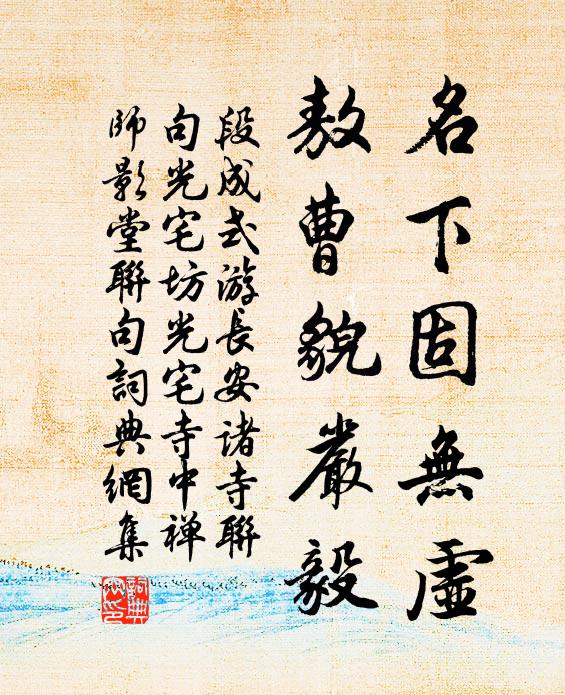 名下固無虛
敖曹貌嚴毅
段成式游長安諸寺聯
句光宅坊光宅寺中禅
師影堂聯句詞典網集